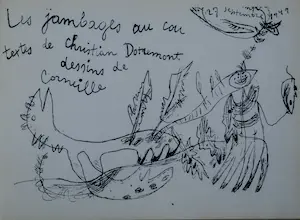 Les jambages au cou
textes de Christian Dotremont
dessins de
Corneille